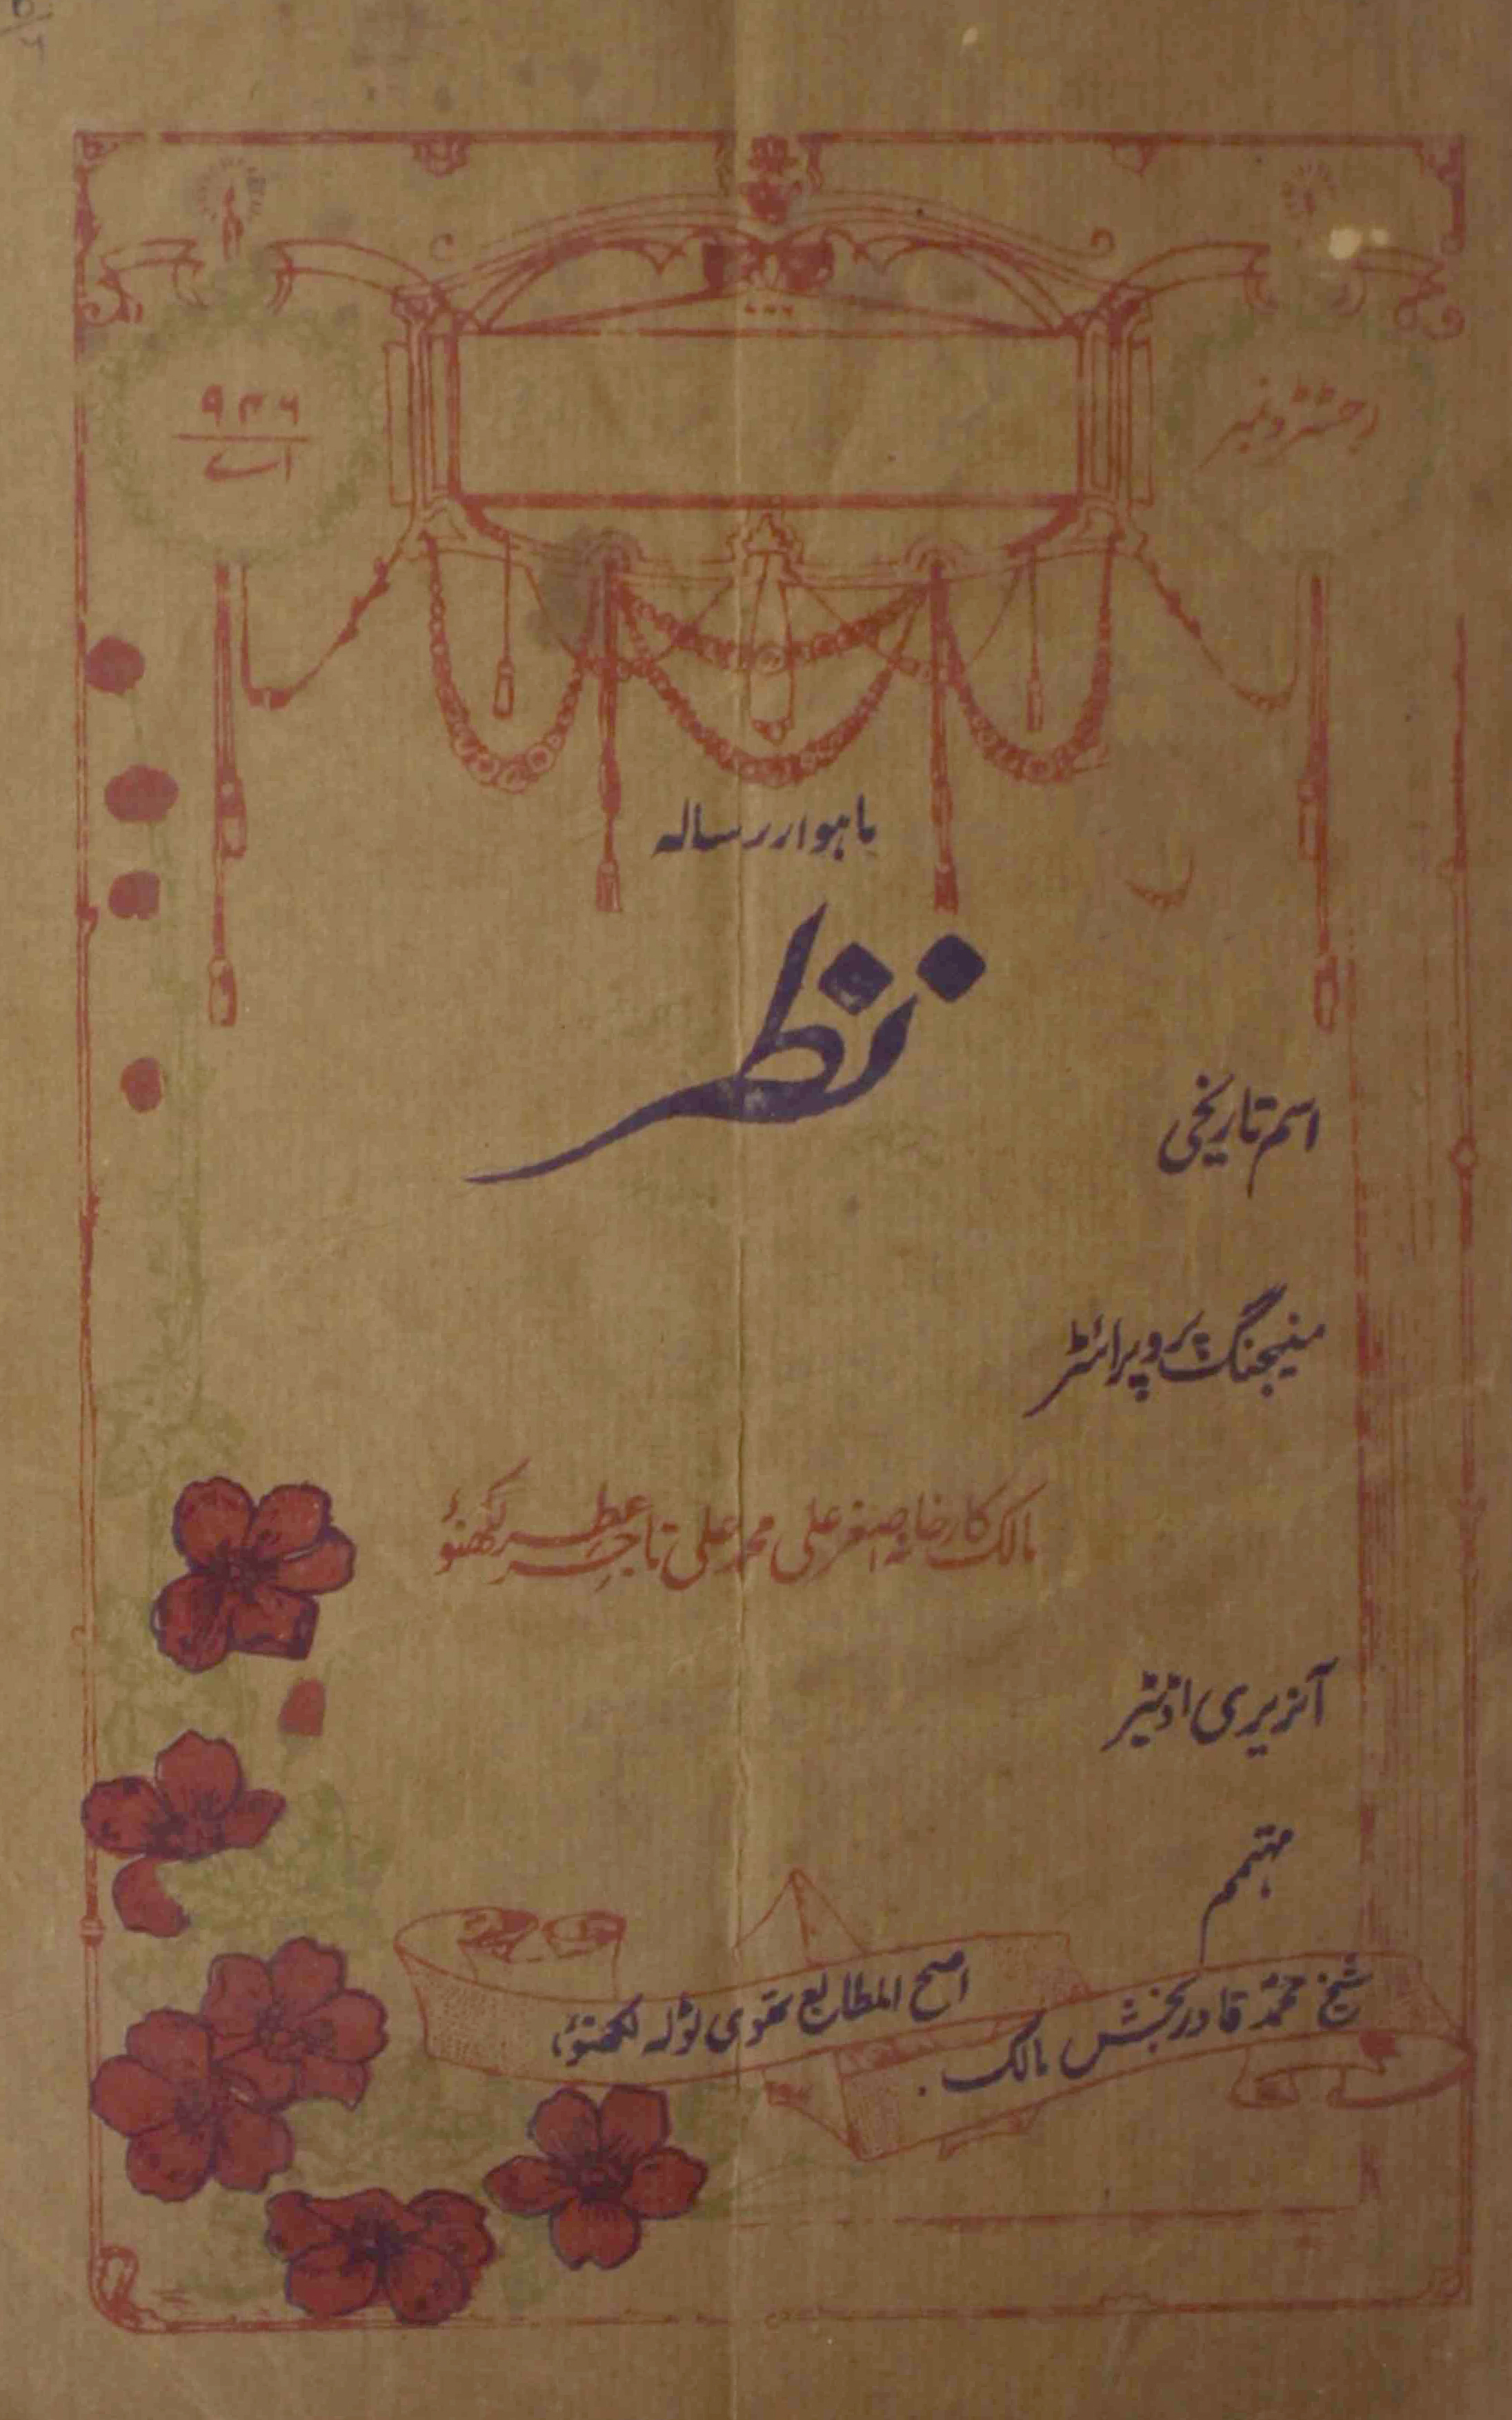 رجسٹرڈ نمبر
۹۳۶
اے
ماہوار رسالہ
نظر
اسم تاریخی
منیجنگ پروپرائٹر
مالک کارخانہ اصغر علی محمد علی تاجر عطر لکھنؤ
آنریری اڈیٹر
مہتمم
شیخ محمد قادر بخش مالک
اصح المطابع تقوی ٹولہ لکھنؤ